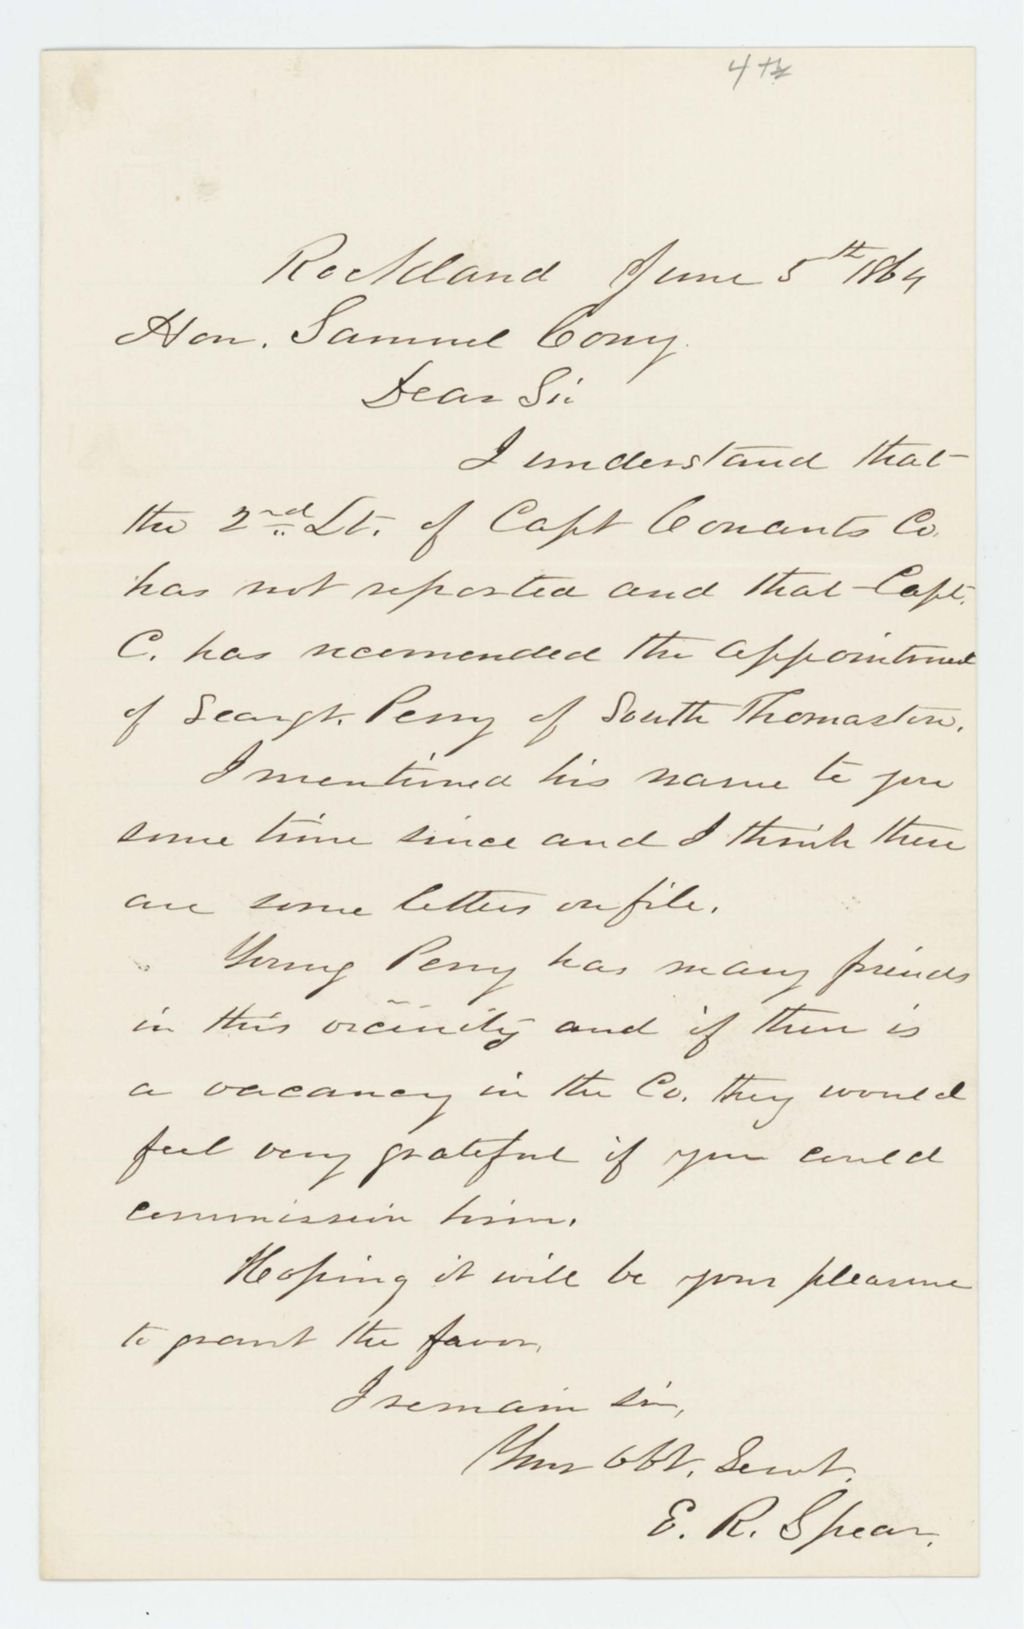 4th
Rockland June 5th 1864
Hon. Samuel Cony.
Dear Sir
I understand that
the 2nd Lt. of Capt Conants Co.
has not reported and that Capt.
C. has recomended the appointment
of Seargt. Perry of South Thomaston.
I mentioned his name to you
some time since and I think there
are some letters on file.
Young Perry has many friends
in this vicinity and if there is
a vacancy in the Co. they would
feel very grateful if you could
commission him.
Hoping it will be your pleasure
to grant the favor,
I remain sir,
Your obt. Servt.
E. R. Spear.